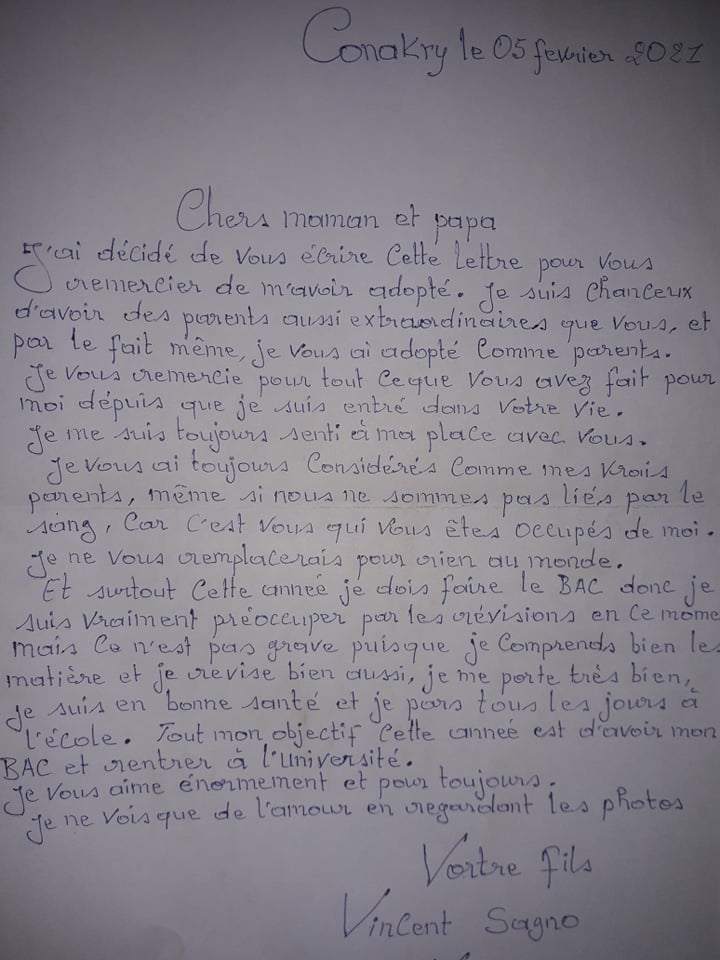 Conakry le 05 fevrier 2021
Chers maman et papa
J'ai décidé de vous écrire cette lettre pour vous
remercier de m'avoir adopté. Je suis chanceux
d'avoir des parents aussi extraordinaires que vous, et
par le fait même, je vous ai adopté comme parents.
Je vous remercie pour tout ceque vous avez fait pour
moi dépuis que je suis entré dans votre vie.
Je me suis toujours senti à ma place avec vous.
Je vous ai toujours considérés comme mes vrais
parents, même si nous ne sommes pas liés par le
sang, car c'est vous qui vous êtes occupés de moi.
Je ne vous remplacerais pour rien au monde.
Et surtout cette anneé je dois faire le BAC donc je
suis vraiment préoccuper par les révisions en ce mome
mais ce n'est pas grave puisque je comprends bien les
matière et je revise bien aussi, je me porte très bien,
je suis en bonne santé et je pars tous les jours à
l'école. Tout mon objectif cette anneé est d'avoir mon
BAC et rentrer à l'université.
Je vous aime énormement et pour toujours.
Je ne vois que de l'amour en regardant les photos
Vortre fils
Vincent Sagno